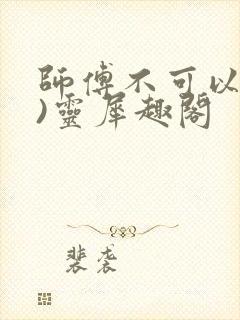 師傅不可以
)靈犀趣閣
裴裘